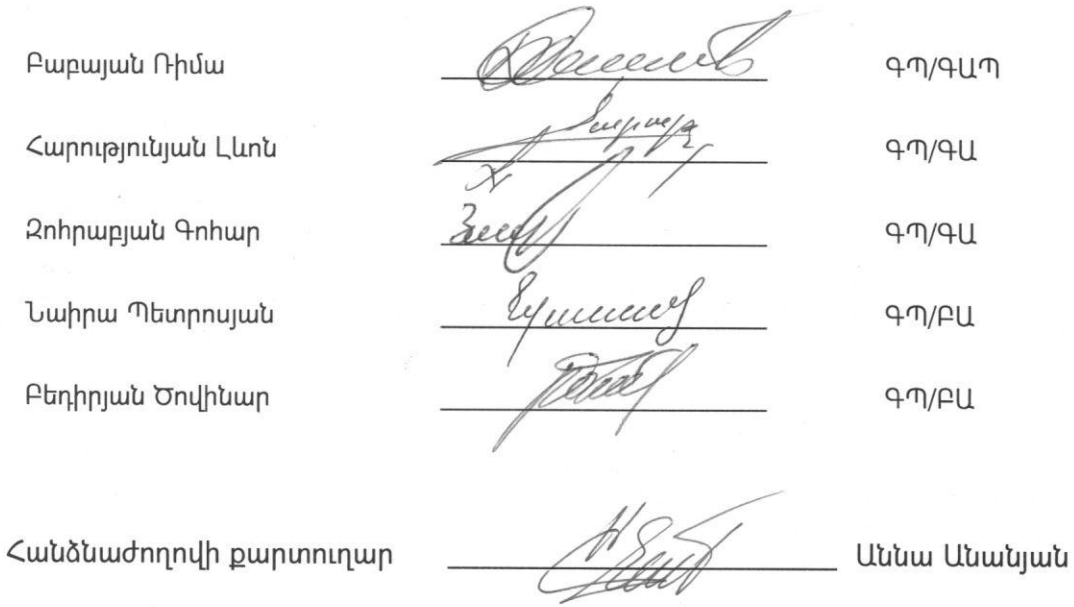 Բաբայան Ռիմա ԳՊ/ԳԱՊ
Հարությունյան Լևոն ԳՊ/ԳԱ
Զոհրաբյան Գոհար ԳՊ/ԳԱ
Նաիրա Պետրոսյան ԳՊ/ԲԱ
Բեդիրյան Ծովինար ԳՊ/ԲԱ
Հանձնաժողովի քարտուղար Աննա Անանյան